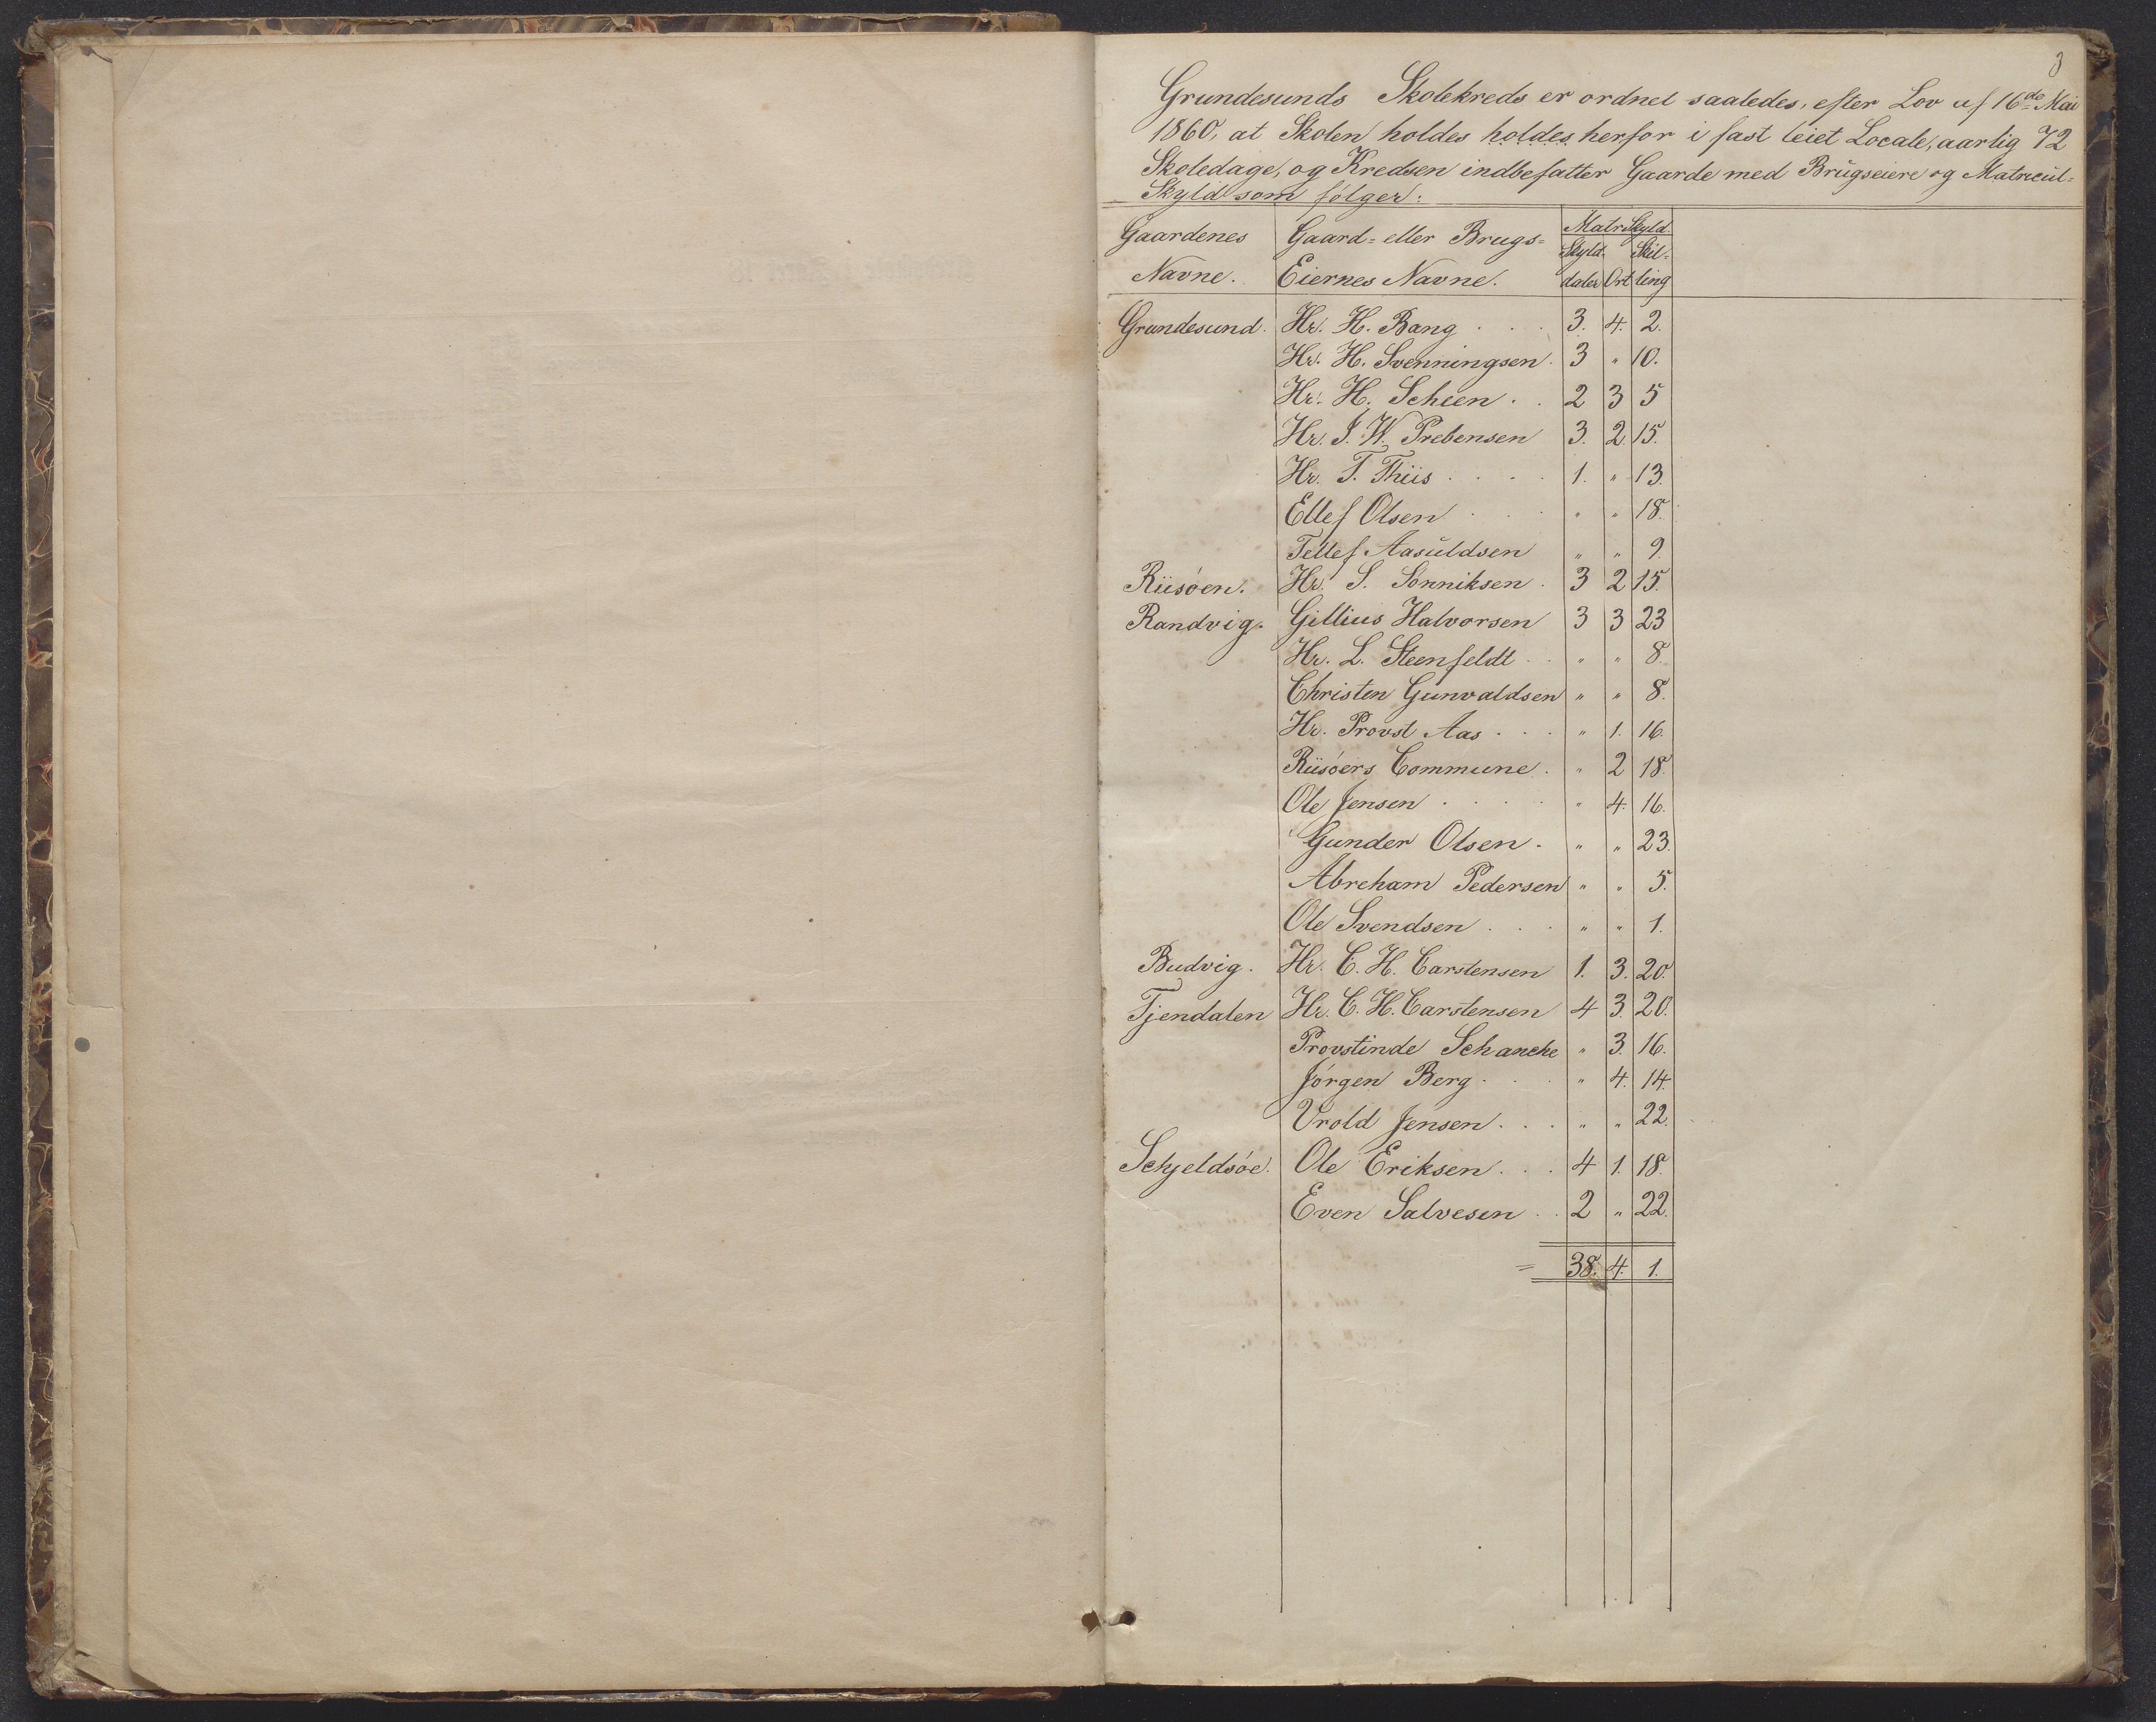 3
Grundesunds Skolekreds er ordnet saaledes, efter Lov af 16de Mai
1860, at Skolen holdes holdes herfor i fast leiet Locale, aarlig 72
Skoledage, og Kredsen indbefatter Gaarde med Brugseiere og Matricul-
Skyld som følger:
Gaardenes Gaard- eller Brugs- Matr. Skyld.
Skyld- Skil-
Navne. Eiernes Navne. daler Ort ling
Grundesund. Hr. H. Bang . . . 3. 4. 2.
Hr. H. Svenningsen. 3 " 10.
Hr. H. Scheen . . 2 3 5
Hr. J. W. Prebensen 3. 2. 15.
Hr. T. Thiis . . . . 1. " 13.
Ellef Olsen . . . " " 18.
Tellef Aasuldsen " " 9.
Riisøen. Hr. S. Sonniksen . 3 2 15.
Randvig. Gillius Halvorsen 3 3 23
Hr. L. Steenfeldt . . " " 8.
Christen Gunvaldsen " " 8.
Hr. Provst Aas . . . " 1. 16.
Riisøers Commune . " 2 18.
Ole Jensen . . . . " 4. 16.
Gunder Olsen . " " 23.
Abreham Pedersen " " 5.
Ole Svendsen . . . " " 1.
Budvig. Hr. C. H. Carstensen 1. 3. 20.
Tjendalen Hr. C. H. Carstensen 4 3. 20.
Provstinde Schanche " 3. 16.
Jørgen Berg . . . " 4. 14.
Vrold Jensen . . . " " 22.
Schjeldsøe. Ole Eriksen . . . 4 1. 18.
Even Salvesen . . 2 " 22.
= 38. 4. 1.